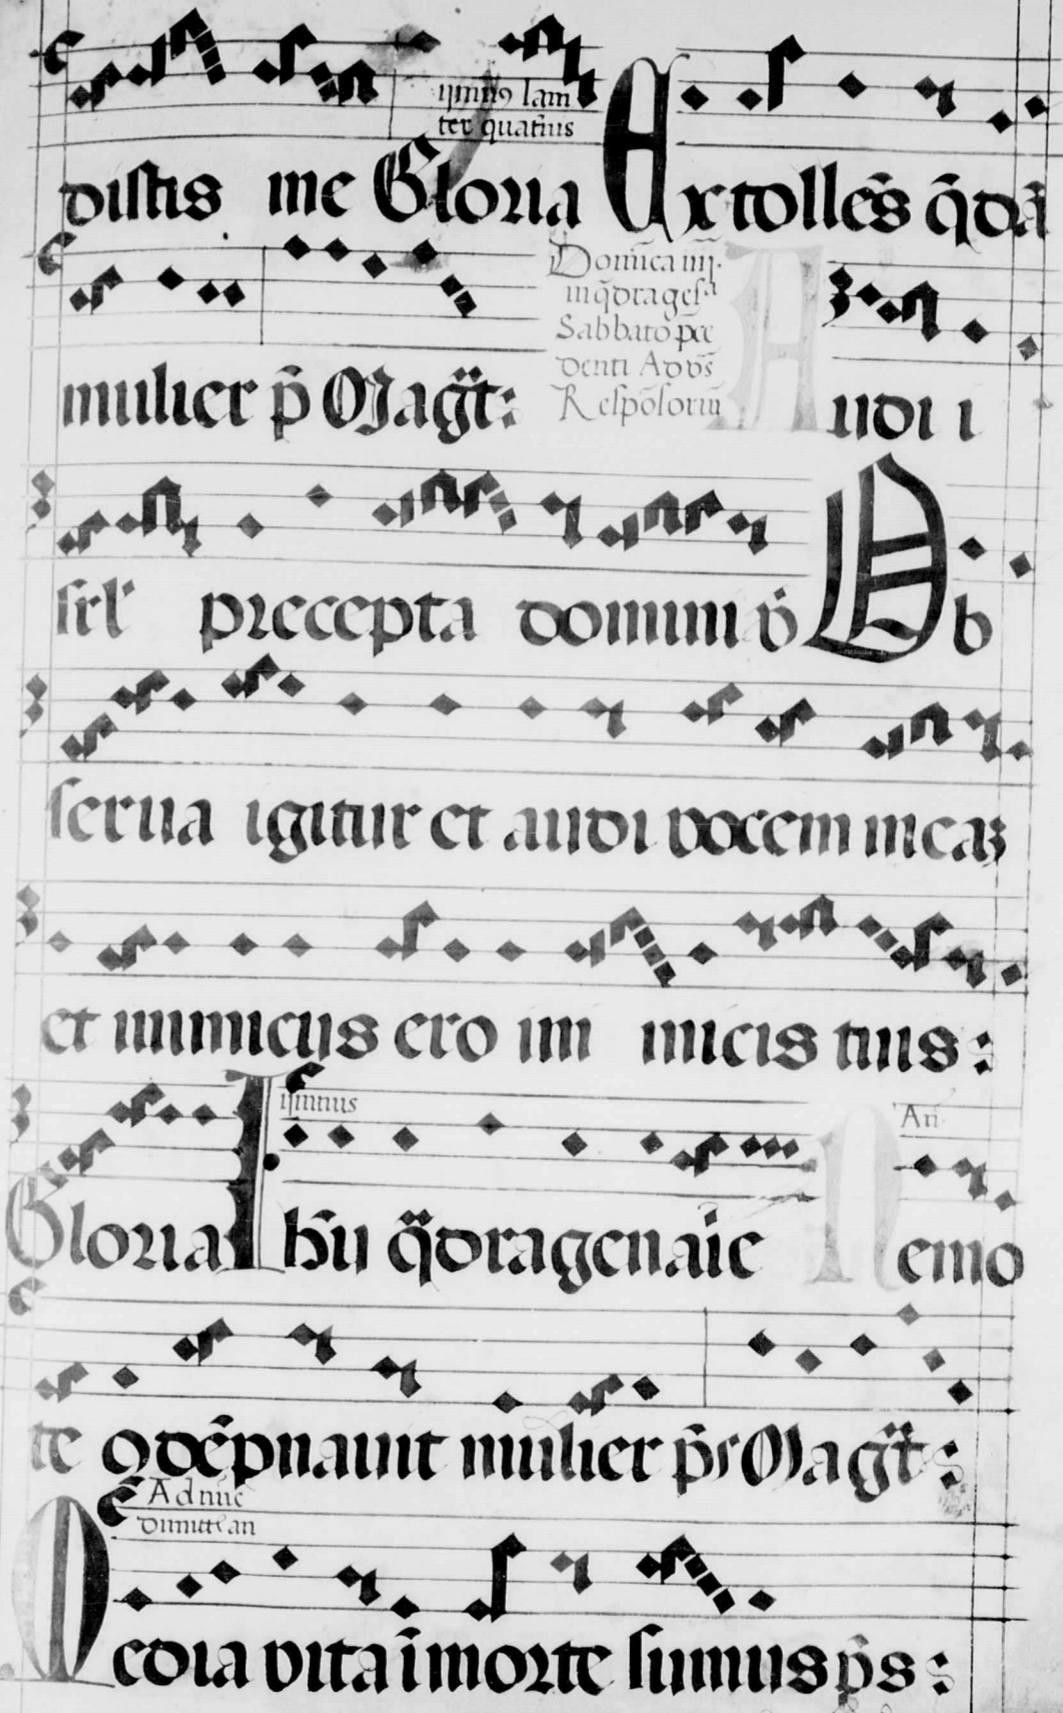 ijmus lam
ter quatñus
distis me Gloria Extollẽs q̃dã
Domĩca iiij.
inq̃dragesᵃ
Sabbato p̃ce
denti Ad vẽs
Respõsoriũ
mulier p̃ Magᷓt: Audi i
srl' precepta domini v̓ Ob
serua igitur et audi vocem meaz
et inimicus ero ini micis tuis:
isimus An
Gloria Ihũ qᷓdragenarie Nemo
te ꝯdẽpnauit mulier p̃s Magᷓt:
Ad nũc
dimitt an
Media vita ĩ morte sumus p̃s: